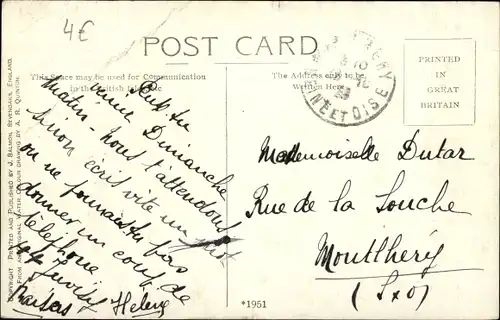 4€
POST CARD
This Space may be used for Communication
in the British Isles
The Address only to be
Written Here
PRINTED
IN
GREAT
BRITAIN
COPYRIGHT. PRINTED AND PUBLISHED BY J. SALMON, SEVENOAKS, ENGLAND.
FROM AN ORIGINAL WATER COLOUR DRAWING BY A. R. QUINTON.
SEINE ET OISE
Peux tu
venir Dimanche
matin - nous t'attendons
sinon écris vite un mot
ou ne pourrais tu pas
donner un coup de
téléphone
Juvisy
Baisers Helene
Mademoiselle Dutar
Rue de la Souche
Montlhéry
(S x O)
*1951